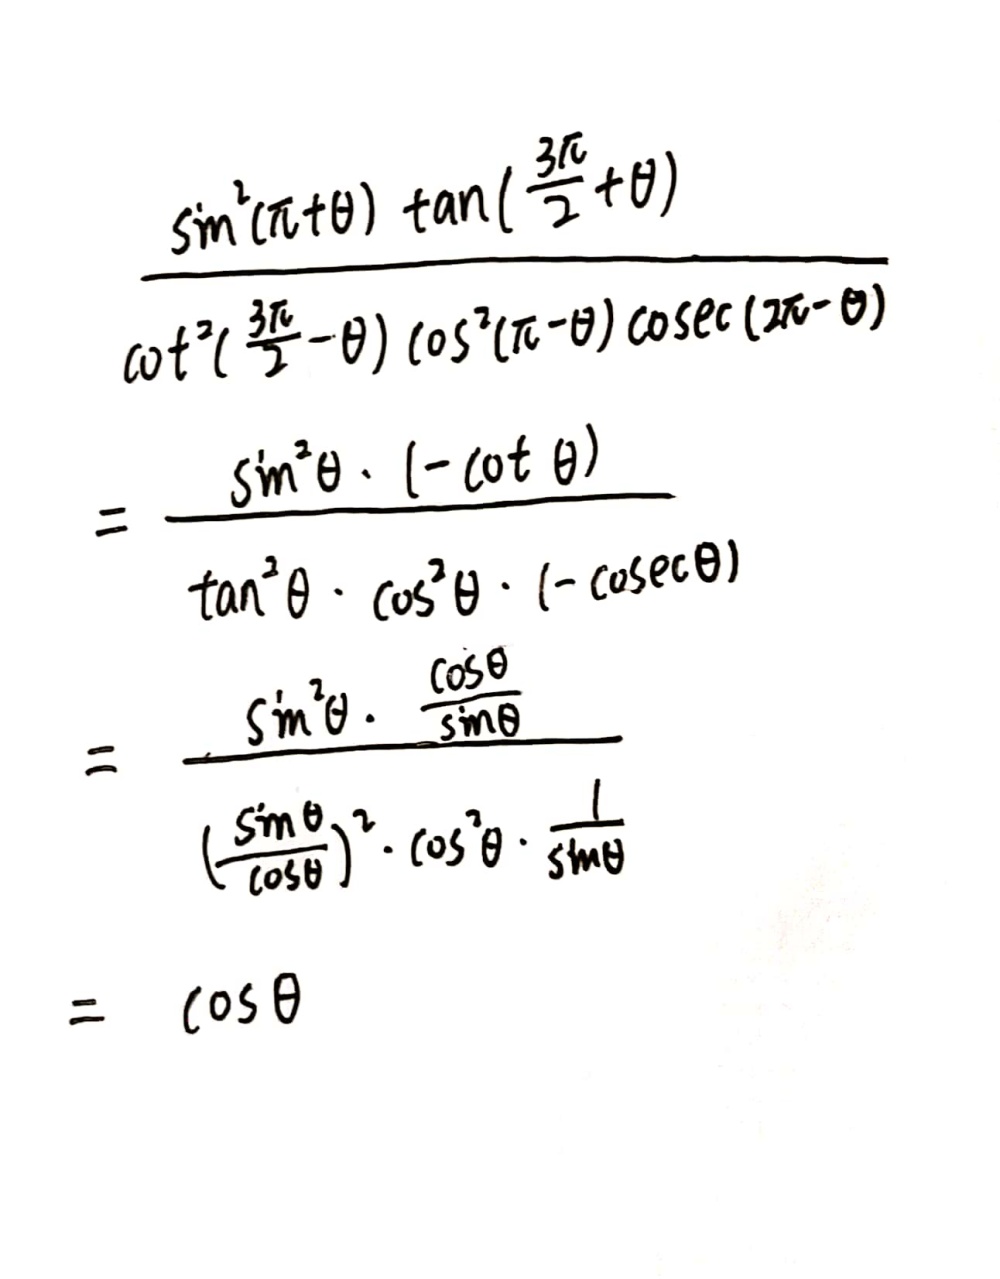 sin²(π+θ) tan(3π/2+θ)
cot²(3π/2-θ) cos²(π-θ) cosec(2π-θ)
= sin²θ · (-cot θ)
tan²θ · cos²θ · (-cosecθ)
= sin²θ · cosθ/sinθ
(sinθ/cosθ)² · cos²θ · 1/sinθ
= cosθ